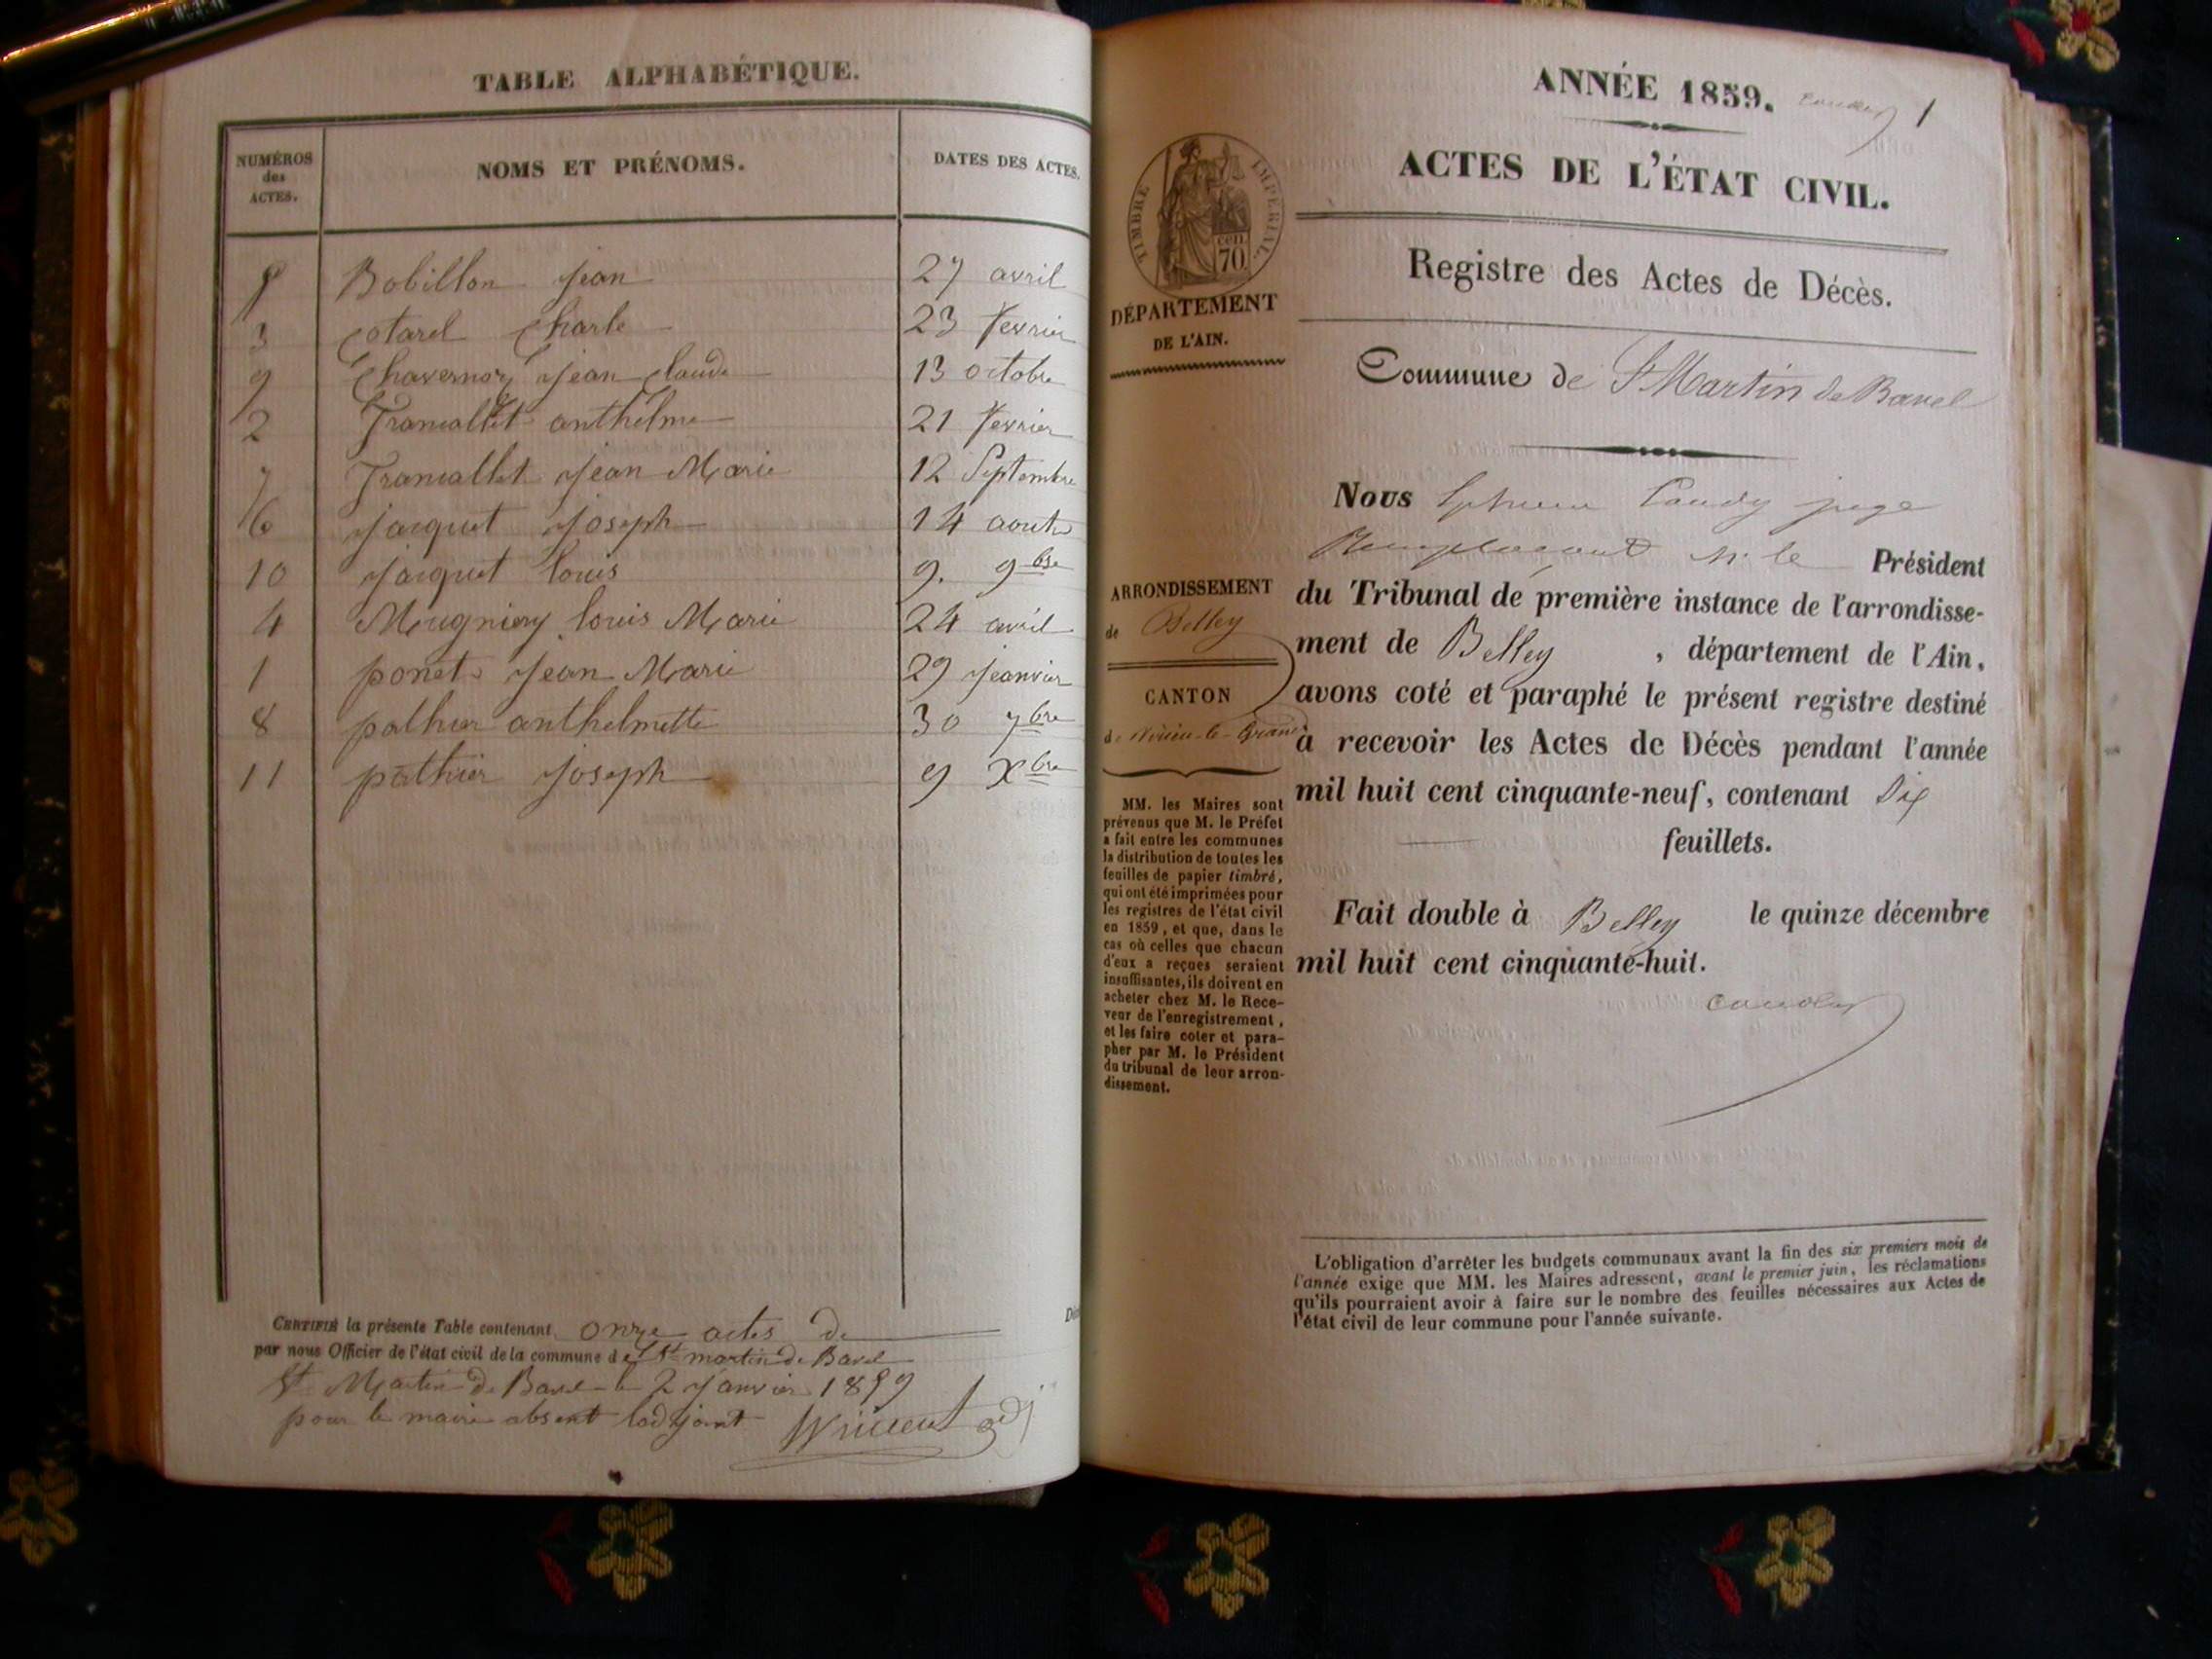 TABLE ALPHABÉTIQUE.
NUMÉROS des ACTES. NOMS ET PRÉNOMS. DATES DES ACTES.
Bobillon Jean 27 avril
3 Cotarel Charle 23 fevrier
9 Chavernoz Jean Claude 13 octobre
2 anthelme 21 fevrier
7 Jean Marie 12 Septembre
6 Jacquet Joseph 14 aout
10 Jacquet louis 9. 9bre
4 Mugniery louis Marie 24 avril
1 ponet Jean Marie 29 Jeanvier
8 pathier anthelmette 30 7bre
11 pathier Joseph 9 Xbre
CERTIFIÉ la présente Table contenant onze actes de
par nous Officier de l'état civil de la commune de St martin de Bavel
St Martin de Bavel le 2 Janvier 1859
pour le maire absent ladjoint Vincent adj
ANNÉE 1859. 1
ACTES DE L'ÉTAT CIVIL.
TIMBRE IMPÉRIAL.
cen. 70
Registre des Actes de Décès.
DÉPARTEMENT
DE L'AIN.
Commune de St Martin de Bavel
Nous juge
Remplacant Mr le Président
du Tribunal de première instance de l'arrondisse-
ment de Belley, département de l'Ain,
avons coté et paraphé le présent registre destiné
à recevoir les Actes de Décès pendant l'année
mil huit cent cinquante-neuf, contenant Dix
feuillets.
Fait double à Belley le quinze décembre
mil huit cent cinquante-huit.
ARRONDISSEMENT
de Belley
CANTON
de Virieu-le-Grand
MM. les Maires sont
prévenus que M. le Préfet
a fait entre les communes
la distribution de toutes les
feuilles de papier timbré,
qui ont été imprimées pour
les registres de l'état civil
en 1859, et que, dans le
cas où celles que chacun
d'eux a reçues seraient
insuffisantes, ils doivent en
acheter chez M. le Rece-
veur de l'enregistrement,
et les faire coter et para-
pher par M. le Président
du tribunal de leur arron-
dissement.
L'obligation d'arrêter les budgets communaux avant la fin des six premiers mois de
l'année exige que MM. les Maires adressent, avant le premier juin, les réclamations
qu'ils pourraient avoir à faire sur le nombre des feuilles nécessaires aux Actes de
l'état civil de leur commune pour l'année suivante.